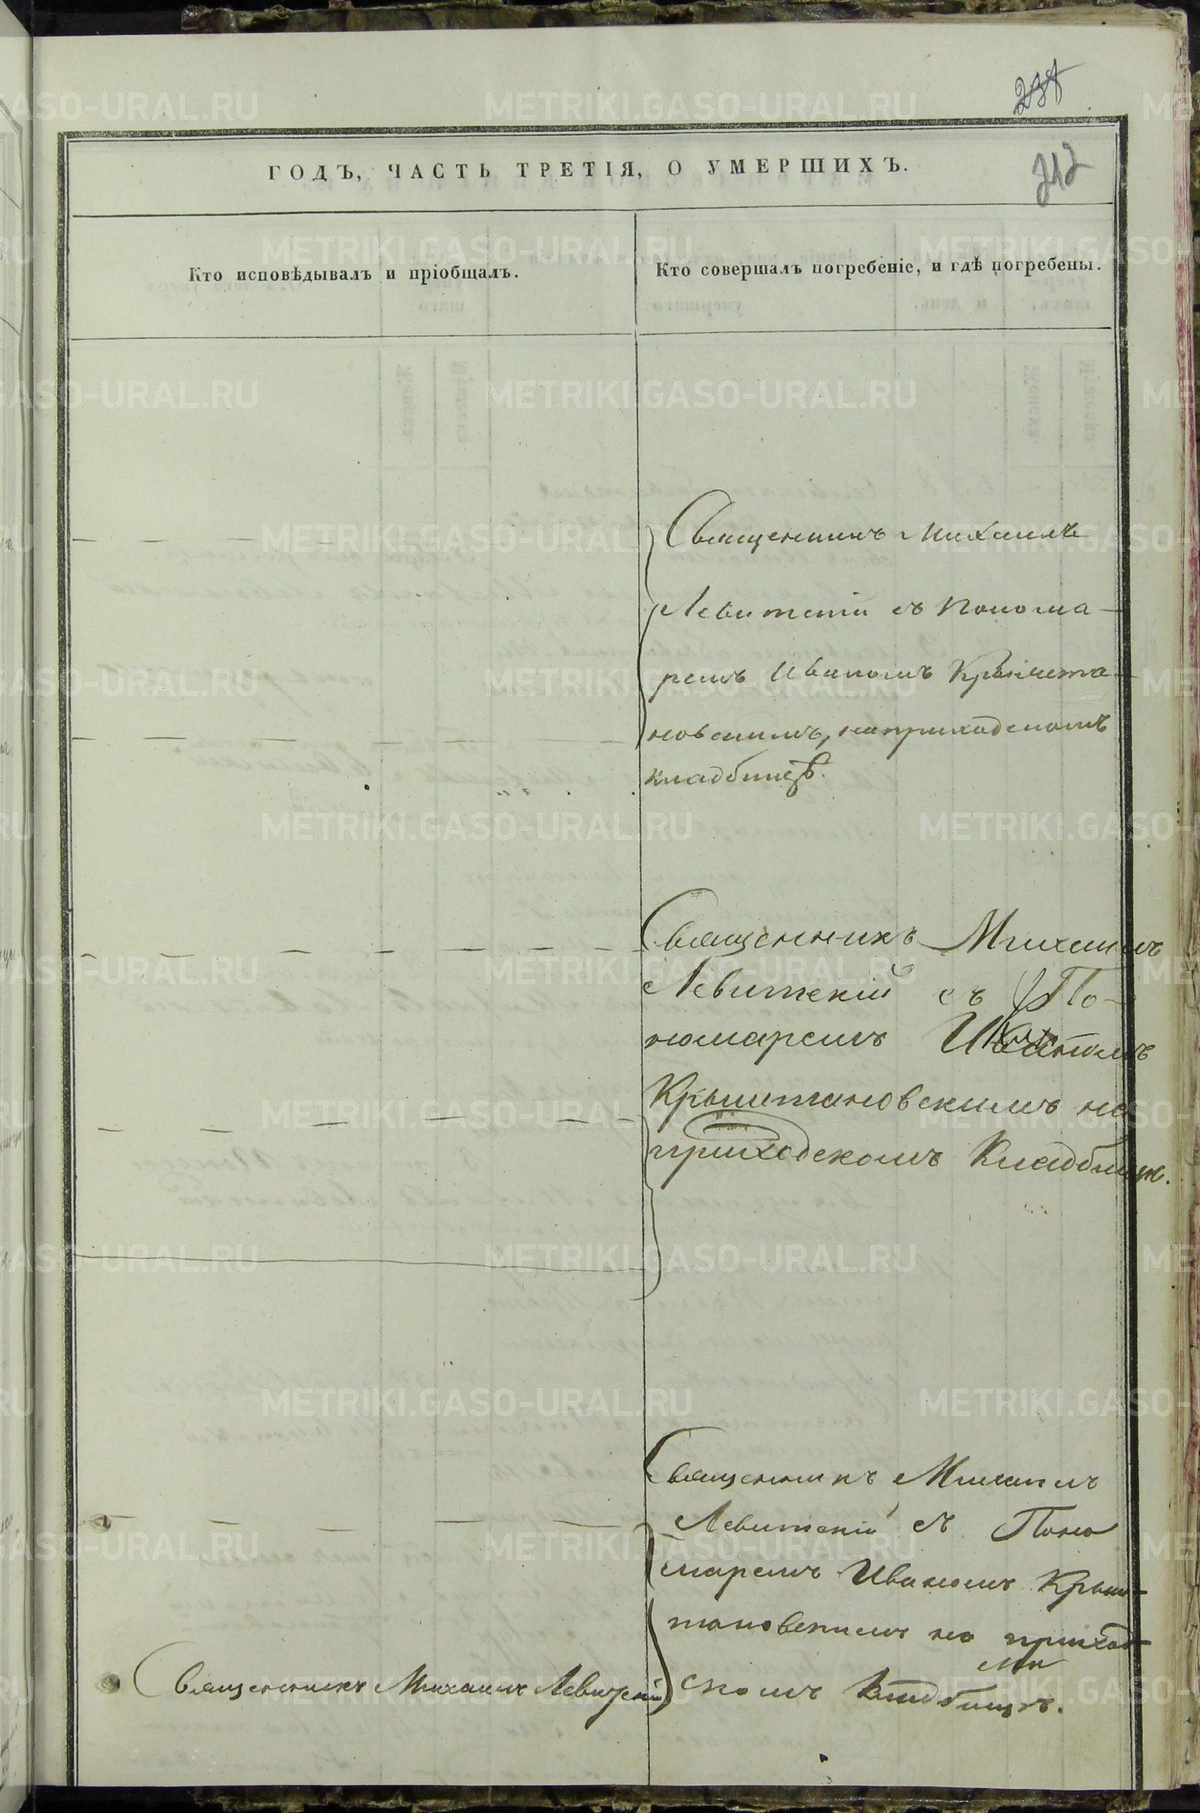 238
212
ГОДЪ, ЧАСТЬ ТРЕТІЯ, О УМЕРШИХЪ.
Кто исповѣдывалъ и пріобщалъ.
Кто совершалъ погребеніе, и гдѣ погребены.
Священникъ Михаилъ
Левитскій съ понома-
ремъ Иваномъ Крышта
новскимъ, на приходскомъ
кладбищѣ.
Священникъ Михаилъ
Левитскій съ По-
номаремъ Иваномъ
Крыштановскимъ на
приходскомъ Кладбищѣ.
Священникъ Михаилъ
Левитскій съ Поно
маремъ Иваномъ Крыш-
тановскимъ на приход-
скомъ Кладбищѣ.
Священникъ Михаилъ Левитскій
METRIKI.GASO-URAL.RU